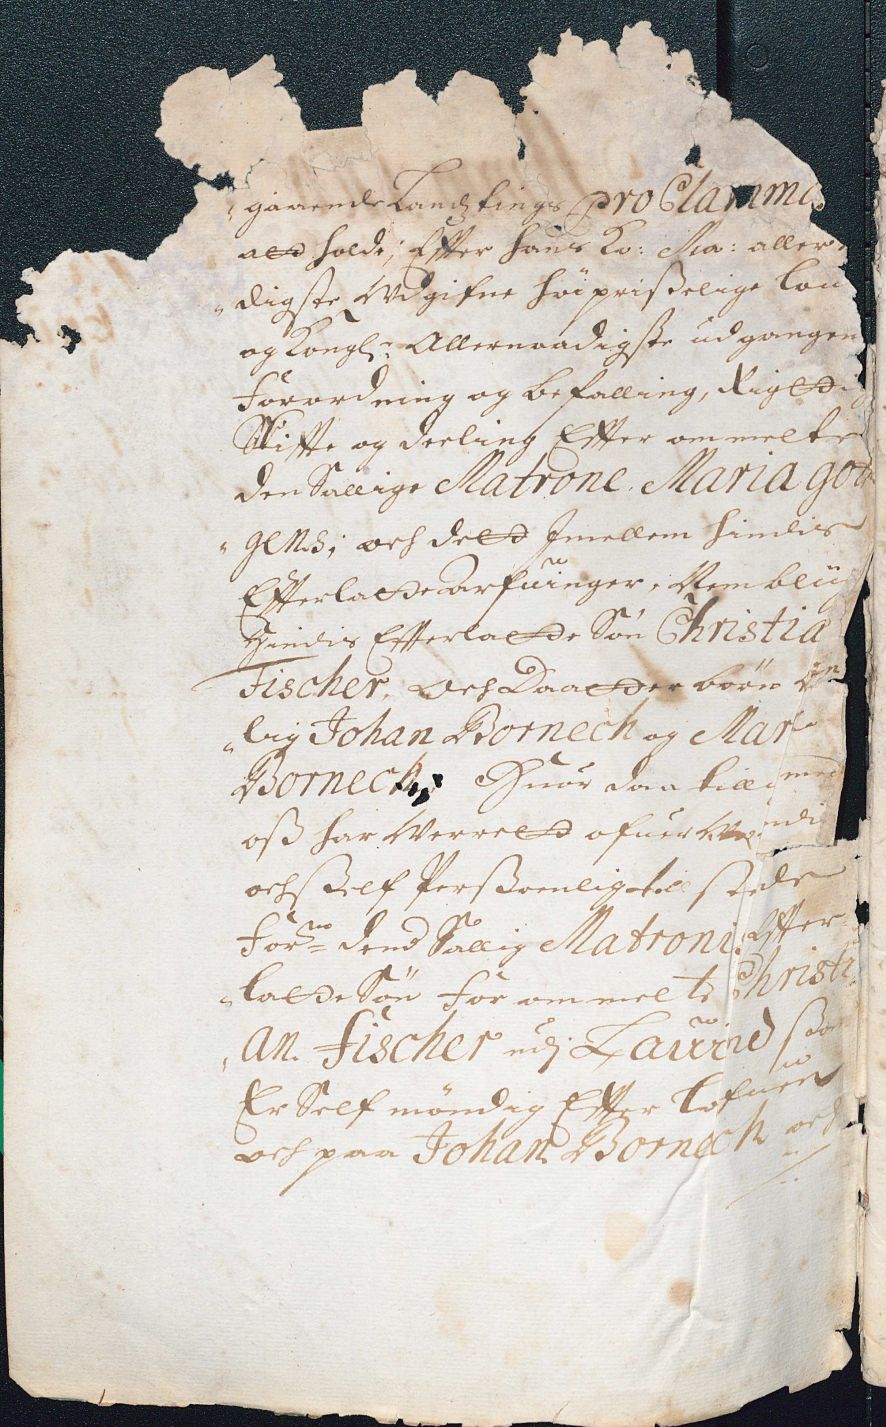 gaaende Landztings pro Clamma
att holde; Efter hans Ko: Ma: aller
digste Udgifne høiprißelige lou
og Kongl: Allernaadigste udgangen
Forordning og befalling, Rigtig
Skiffte og deeling Effter ommelte
den Sallige Matrone Maria got
gens; och deelt Imellem hindis
Effterlatte arfuinger, Nembliig
Hindis Effterlatte Søn Christia
Fischer, och Daatter børn
lig Johan Borneck og Mar
Borneck; Huor daa till med
oß har Werrett ofuer
och Self Persoenlig till stede
For: dend Sallig Matroni Effter
latte Søn for ommelte Christi
an. Fischer udj Laurvid som
Er Self møndig Effter lofuen
och paa Johan Borneck och